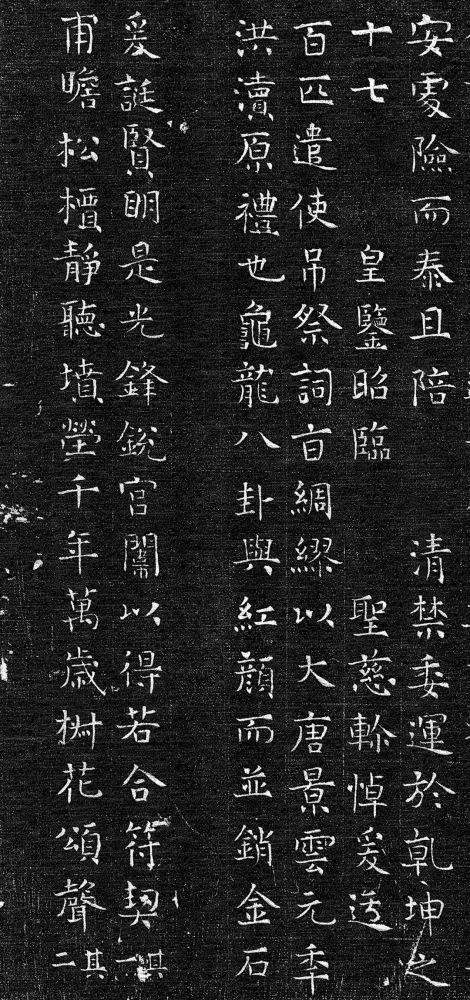 安處險而泰且陪　清禁委運於乹坤之
十七　皇鑒昭臨　聖慈軫悼爰造
百匹遣使吊祭詞旨綢繆以大唐景雲元年
洪瀆原禮也龜龍八卦與紅顏而並銷金石
爰誕賢明是光鋒銳宮闈以得若合符契其一
甫瞻松檟靜聽墳塋千年萬歲椒花頌聲其二